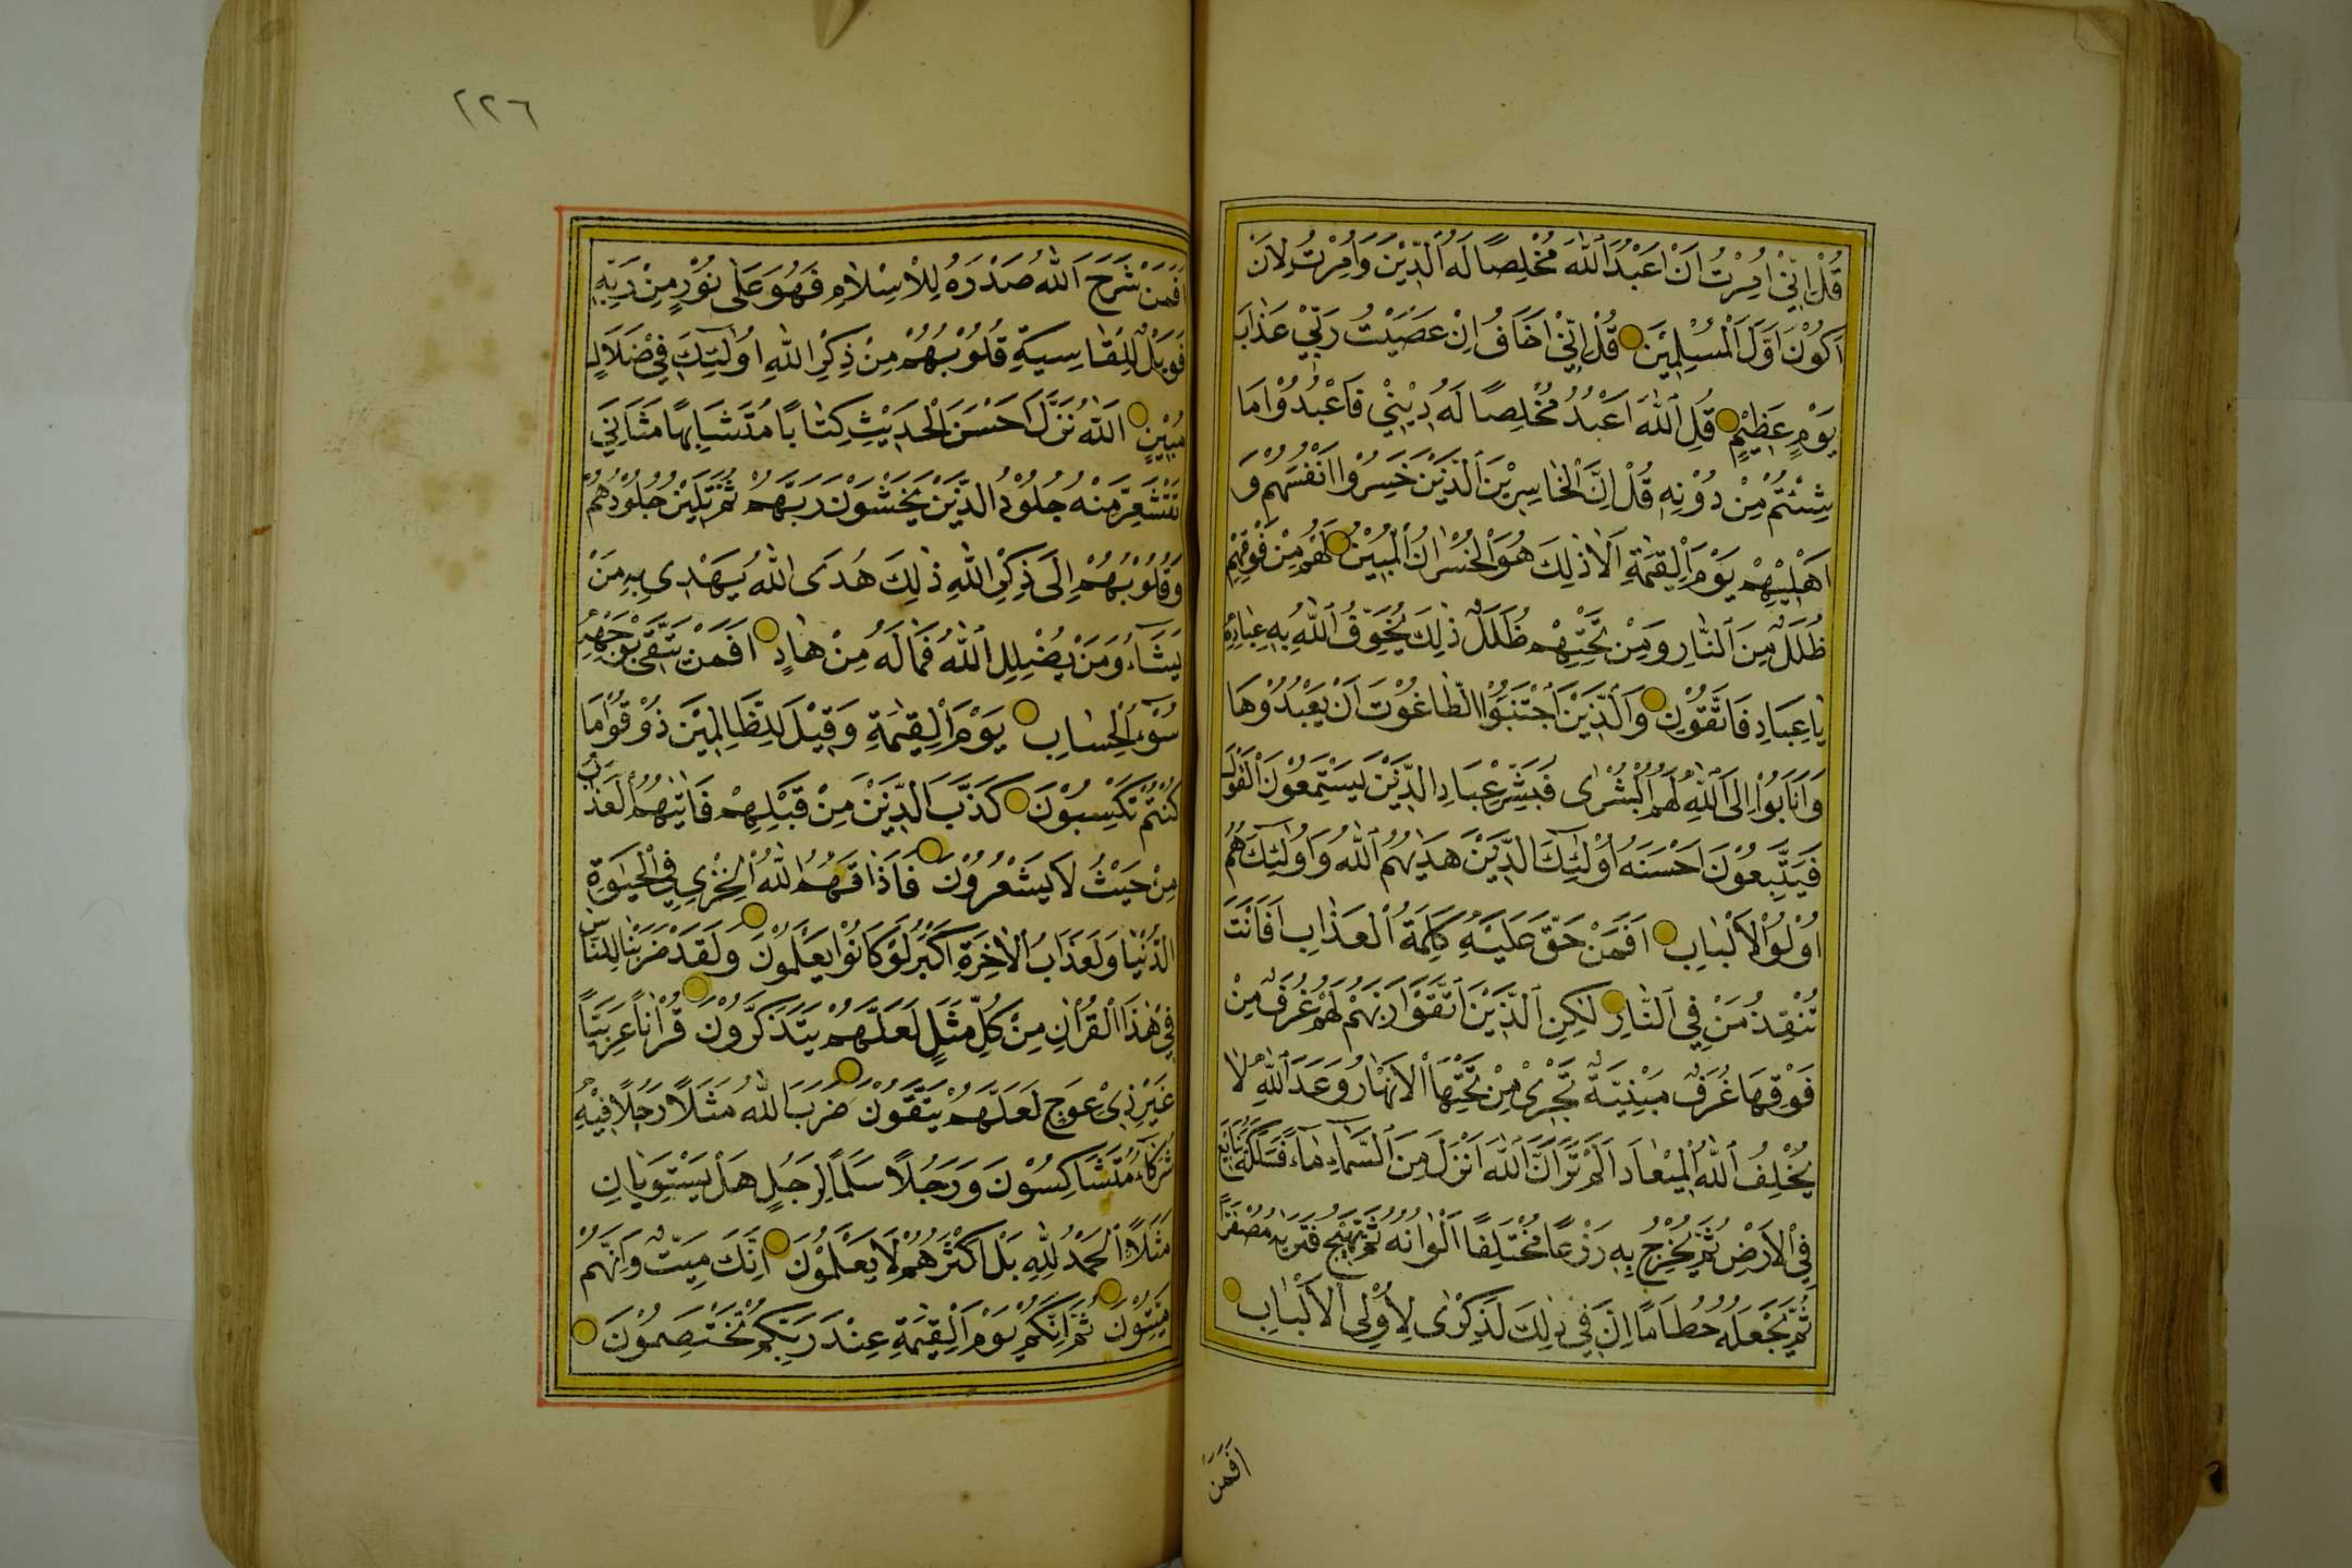 قُلْ اِنِّيْ اُمِرْتُ اَنْ اَعْبُدَ اللّٰهَ مُخْلِصًا لَهُ الدِّيْنَ وَاُمِرْتُ لِاَنْ
اَكُوْنَ اَوَّلَ الْمُسْلِمِيْنَ قُلْ اِنِّيْ اَخَافُ اِنْ عَصَيْتُ رَبِّيْ عَذَابَ
يَوْمٍ عَظِيْمٍ قُلِ اللّٰهَ اَعْبُدُ مُخْلِصًا لَهُ دِيْنِيْ فَاعْبُدُوْا مَا
شِئْتُمْ مِنْ دُوْنِهٖ قُلْ اِنَّ الْخَاسِرِيْنَ الَّذِيْنَ خَسِرُوْا اَنْفُسَهُمْ وَ
اَهْلِيْهِمْ يَوْمَ الْقِيٰمَةِ اَلَا ذٰلِكَ هُوَ الْخُسْرَانُ الْمُبِيْنُ لَهُمْ مِنْ فَوْقِهِمْ
ظُلَلٌ مِنَ النَّارِ وَمِنْ تَحْتِهِمْ ظُلَلٌ ذٰلِكَ يُخَوِّفُ اللّٰهُ بِهٖ عِبَادَهُ
يَا عِبَادِ فَاتَّقُوْنِ وَالَّذِيْنَ اجْتَنَبُوا الطَّاغُوْتَ اَنْ يَعْبُدُوْهَا
وَاَنَابُوْا اِلَى اللّٰهِ لَهُمُ الْبُشْرٰى فَبَشِّرْ عِبَادِ الَّذِيْنَ يَسْتَمِعُوْنَ الْقَوْلَ
فَيَتَّبِعُوْنَ اَحْسَنَهُ اُولٰئِكَ الَّذِيْنَ هَدٰيهُمُ اللّٰهُ وَاُولٰئِكَ هُمْ
اُوْلُوا الْاَلْبَابِ اَفَمَنْ حَقَّ عَلَيْهِ كَلِمَةُ الْعَذَابِ اَفَاَنْتَ
تُنْقِذُ مَنْ فِي النَّارِ لٰكِنِ الَّذِيْنَ اتَّقَوْا رَبَّهُمْ لَهُمْ غُرَفٌ مِنْ
فَوْقِهَا غُرَفٌ مَبْنِيَّةٌ تَجْرِيْ مِنْ تَحْتِهَا الْاَنْهَارُ وَعْدَ اللّٰهِ لَا
يُخْلِفُ اللّٰهُ الْمِيْعَادَ اَلَمْ تَرَ اَنَّ اللّٰهَ اَنْزَلَ مِنَ السَّمَاءِ مَاءً فَسَلَكَهُ يَنَابِيْعَ
فِي الْاَرْضِ ثُمَّ يُخْرِجُ بِهٖ زَرْعًا مُخْتَلِفًا اَلْوَانُهُ ثُمَّ يَهِيْجُ فَتَرٰيهُ مُصْفَرًّا
ثُمَّ يَجْعَلُهُ حُطَامًا اِنَّ فِيْ ذٰلِكَ لَذِكْرٰى لِاُوْلِي الْاَلْبَابِ
اَفَمَنْ
٢٢٦
اَفَمَنْ شَرَحَ اللّٰهُ صَدْرَهُ لِلْاِسْلَامِ فَهُوَ عَلٰى نُوْرٍ مِنْ رَبِّهٖ
فَوَيْلٌ لِلْقَاسِيَةِ قُلُوْبُهُمْ مِنْ ذِكْرِ اللّٰهِ اُولٰئِكَ فِيْ ضَلَالٍ
مُبِيْنٍ اَللّٰهُ نَزَّلَ اَحْسَنَ الْحَدِيْثِ كِتَابًا مُتَشَابِهًا مَثَانِيَ
تَقْشَعِرُّ مِنْهُ جُلُوْدُ الَّذِيْنَ يَخْشَوْنَ رَبَّهُمْ ثُمَّ تَلِيْنُ جُلُوْدُهُمْ
وَقُلُوْبُهُمْ اِلٰى ذِكْرِ اللّٰهِ ذٰلِكَ هُدَى اللّٰهِ يَهْدِيْ بِهٖ مَنْ
يَشَاءُ وَمَنْ يُضْلِلِ اللّٰهُ فَمَا لَهُ مِنْ هَادٍ اَفَمَنْ يَتَّقِيْ بِوَجْهِهٖ
سُوْءَ الْحِسَابِ يَوْمَ الْقِيٰمَةِ وَقِيْلَ لِلظَّالِمِيْنَ ذُوْقُوْا مَا
كُنْتُمْ تَكْسِبُوْنَ كَذَّبَ الَّذِيْنَ مِنْ قَبْلِهِمْ فَاَتٰيهُمُ الْعَذَابُ
مِنْ حَيْثُ لَا يَشْعُرُوْنَ فَاَذَاقَهُمُ اللّٰهُ الْخِزْيَ فِي الْحَيٰوةِ
الدُّنْيَا وَلَعَذَابُ الْاٰخِرَةِ اَكْبَرُ لَوْ كَانُوْا يَعْلَمُوْنَ وَلَقَدْ ضَرَبْنَا لِلنَّاسِ
فِيْ هٰذَا الْقُرْاٰنِ مِنْ كُلِّ مَثَلٍ لَعَلَّهُمْ يَتَذَكَّرُوْنَ قُرْاٰنًا عَرَبِيًّا
غَيْرَ ذِيْ عِوَجٍ لَعَلَّهُمْ يَتَّقُوْنَ ضَرَبَ اللّٰهُ مَثَلًا رَجُلًا فِيْهِ
شُرَكَاءُ مُتَشَاكِسُوْنَ وَرَجُلًا سَلَمًا لِرَجُلٍ هَلْ يَسْتَوِيَانِ
مَثَلًا اَلْحَمْدُ لِلّٰهِ بَلْ اَكْثَرُهُمْ لَا يَعْلَمُوْنَ اِنَّكَ مَيِّتٌ وَاِنَّهُمْ
مَيِّتُوْنَ ثُمَّ اِنَّكُمْ يَوْمَ الْقِيٰمَةِ عِنْدَ رَبِّكُمْ تَخْتَصِمُوْنَ